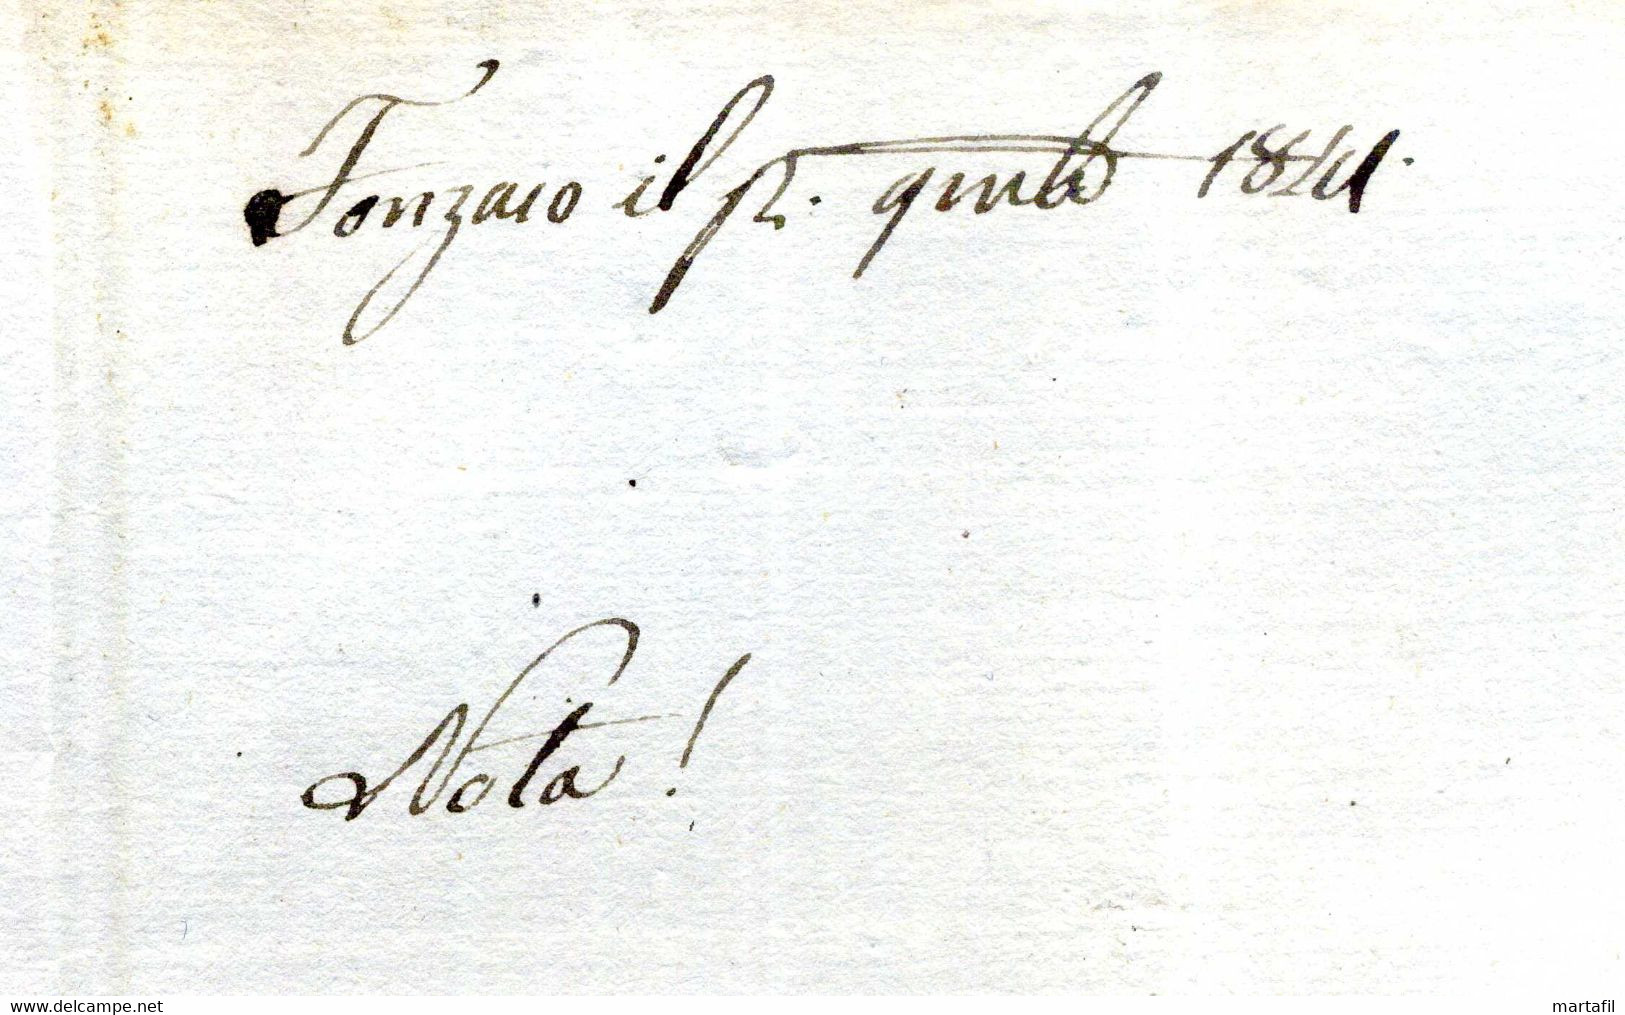 Fonzaso il p. 1841.
Nota!
www.delcampe.net
martafil